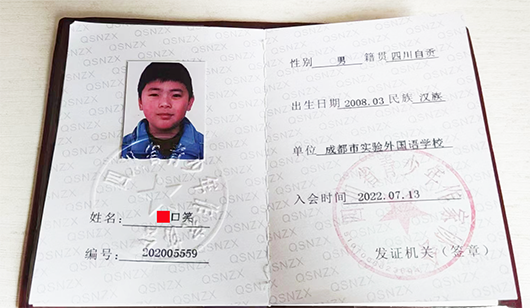 姓名：口笑
编号：202005559
性别 男 籍贯 四川自贡
出生日期 2008.03 民族 汉族
单位 成都市实验外国语学校
入会时间 2022.07.13
发证机关（签章）
QSNZX